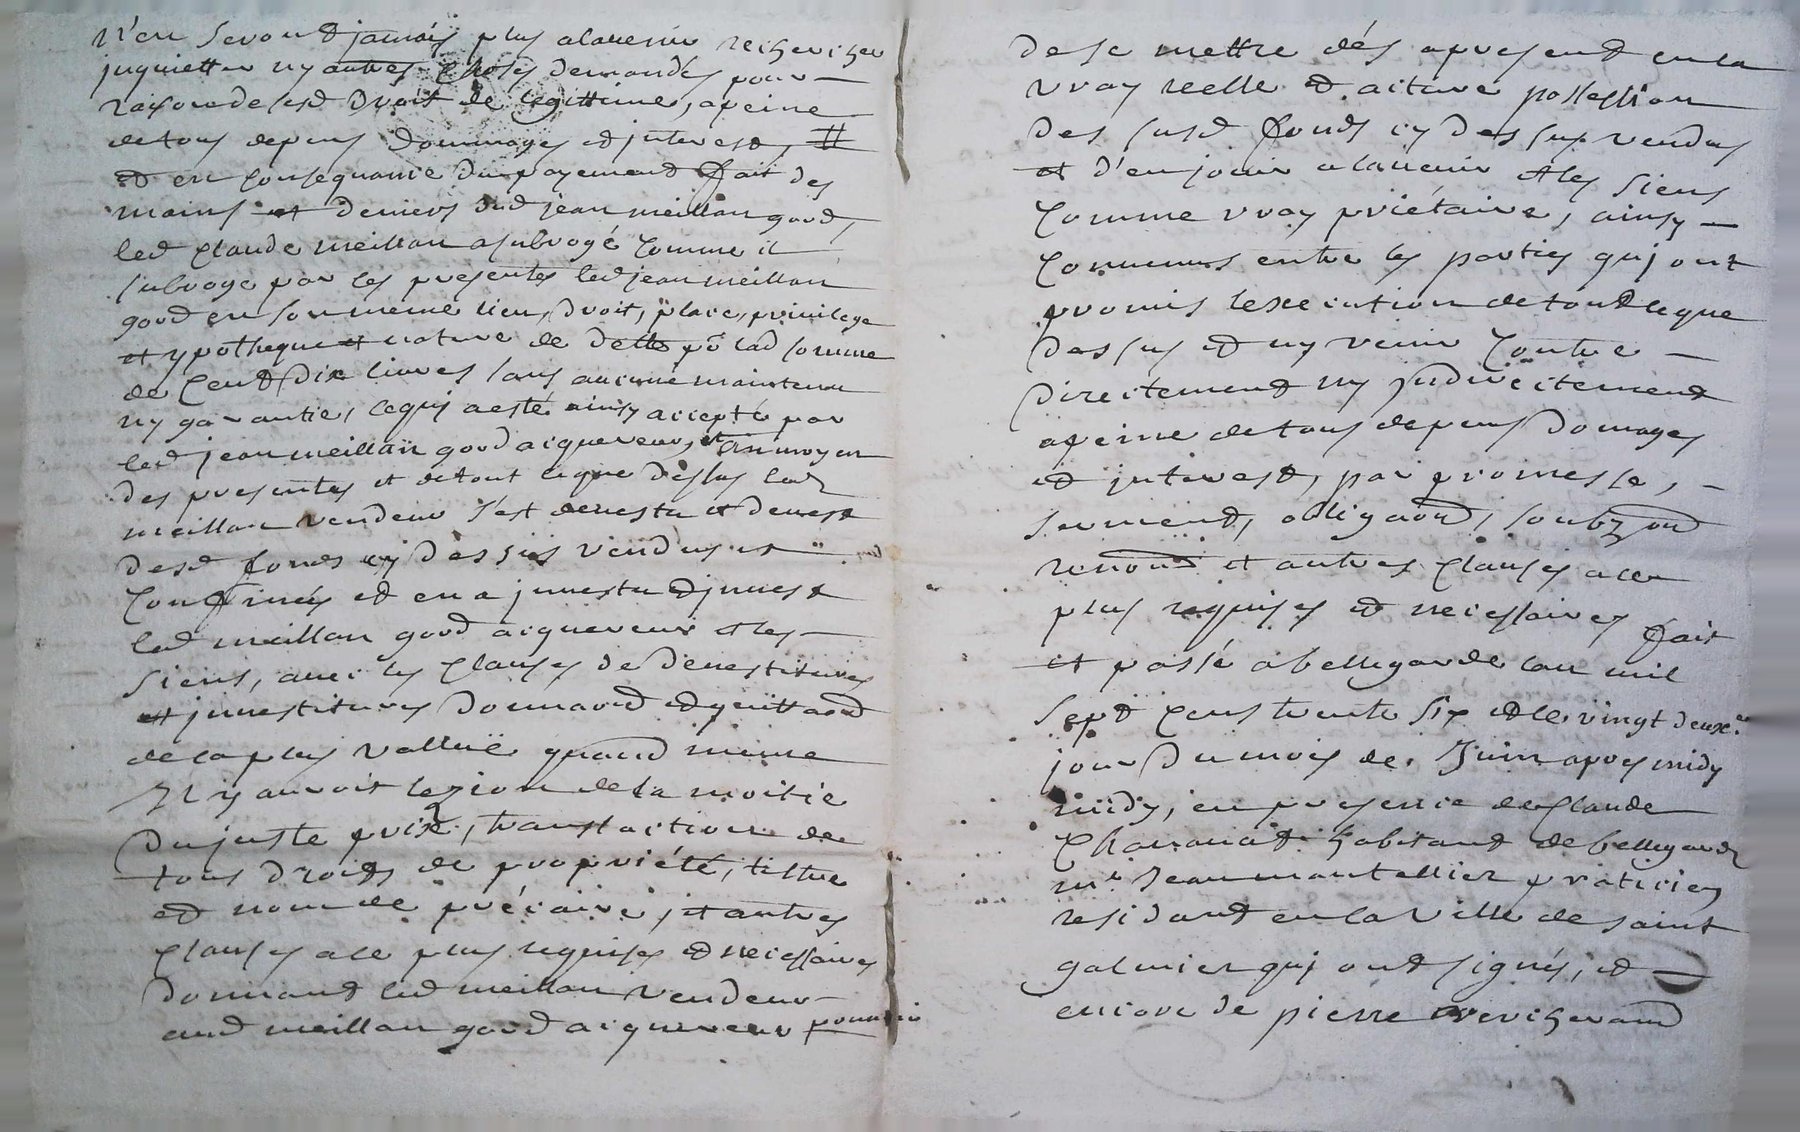 n'en seront jamais plus alauenir rechercher
juquietter ny autres choses demandés pour
raison de lesd droit de legittime, apeine
de tous depens dommages et jnterest, #
et en consequance du payement fait des
mains et deniers dud jean meillan goud,
led claude meillan a subrogé comme il
subroge par les presentes led jean meillan
goud en son meme lieu, droit, place, priuilege
et ypotheque et nature de dette po lad somme
de cent dix liures sans aucune maintenu
ny garantie, cequj a esté ainsy accepté par
led jean meillan goud acquereur, et au moyen
des presentes et de tout ceque dessus led
meillan vendeur s'est deuestu et deuest
desd fonds cy dessus vendus et
confinés et en a jnuestu et jnuest
led meillan goud acquereur et les
siens, auec les clauses de deuestitures
et jnuestitures donnant et quittant
de la plus valluë quand meme
Jl y auroit lezion de la moitie
du juste prix, translaction de
tous droits de propriété, tiltre
et nom de précaire, et autres
clauses a ce plus requises et necessaires
donnant led meillan vendeur
aud meillan goud acquereur pouuoir
de se mettre dés apresent en la
vray reelle et actuve possession
des susd fonds cy dessus vendus
et d'en jouir alauenir et les siens
comme vray priétaire, ainsy
conuenus entre les parties quj ont
promis lexecution de tout ceque
dessus et ny venir contre
directement ny jndirectement
apeine de tous depens domages
et jnterest, par promesse,
serment, obligaond, soubzon
renond et autres clauses a ce
plus requises et necessaires fait
et passé a bellegarde lan mil
sept cens trente six et le vingt deuxe.
jour du mois de Juin apres midy
midy, en presence de claude
habitant de bellegarde
me Jean mantellier praticien
residant en la ville de saint
galmier quj ont signés, et
encore de pierre